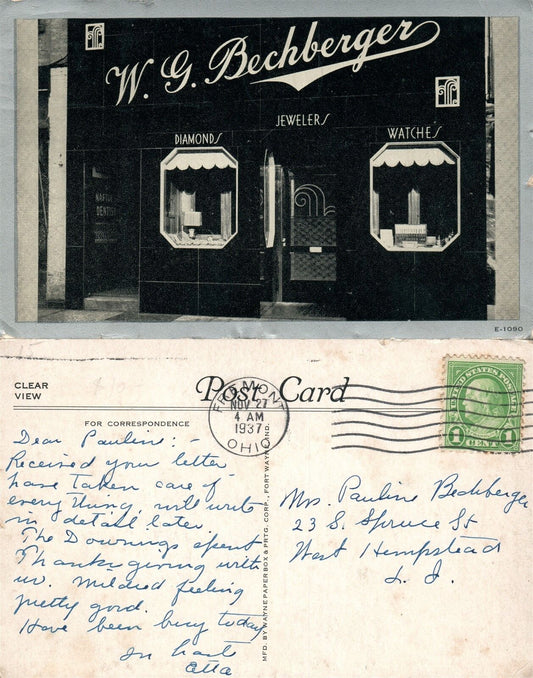 W. G. Bechberger
JEWELERS
DIAMONDS
WATCHES
DENTIST
E-1090
CLEAR
VIEW
Post Card
FOR CORRESPONDENCE
FREMONT
NOV 27
4 AM
1937
OHIO
UNITED STATES POSTAGE
1 CENT 1
Dear Pauline: -
Received your letter
have taken care of
everything, will write
in detail later.
The Downings spent
Thanksgiving with
us. Mildred feeling
pretty good.
Have been busy today
In haste
MFD. BY WAYNE PAPER BOX & PRTG. CORP., FORT WAYNE, IND.
Mrs. Pauline Bechberger
23 S. Spruce St
West Hempstead
L. I.